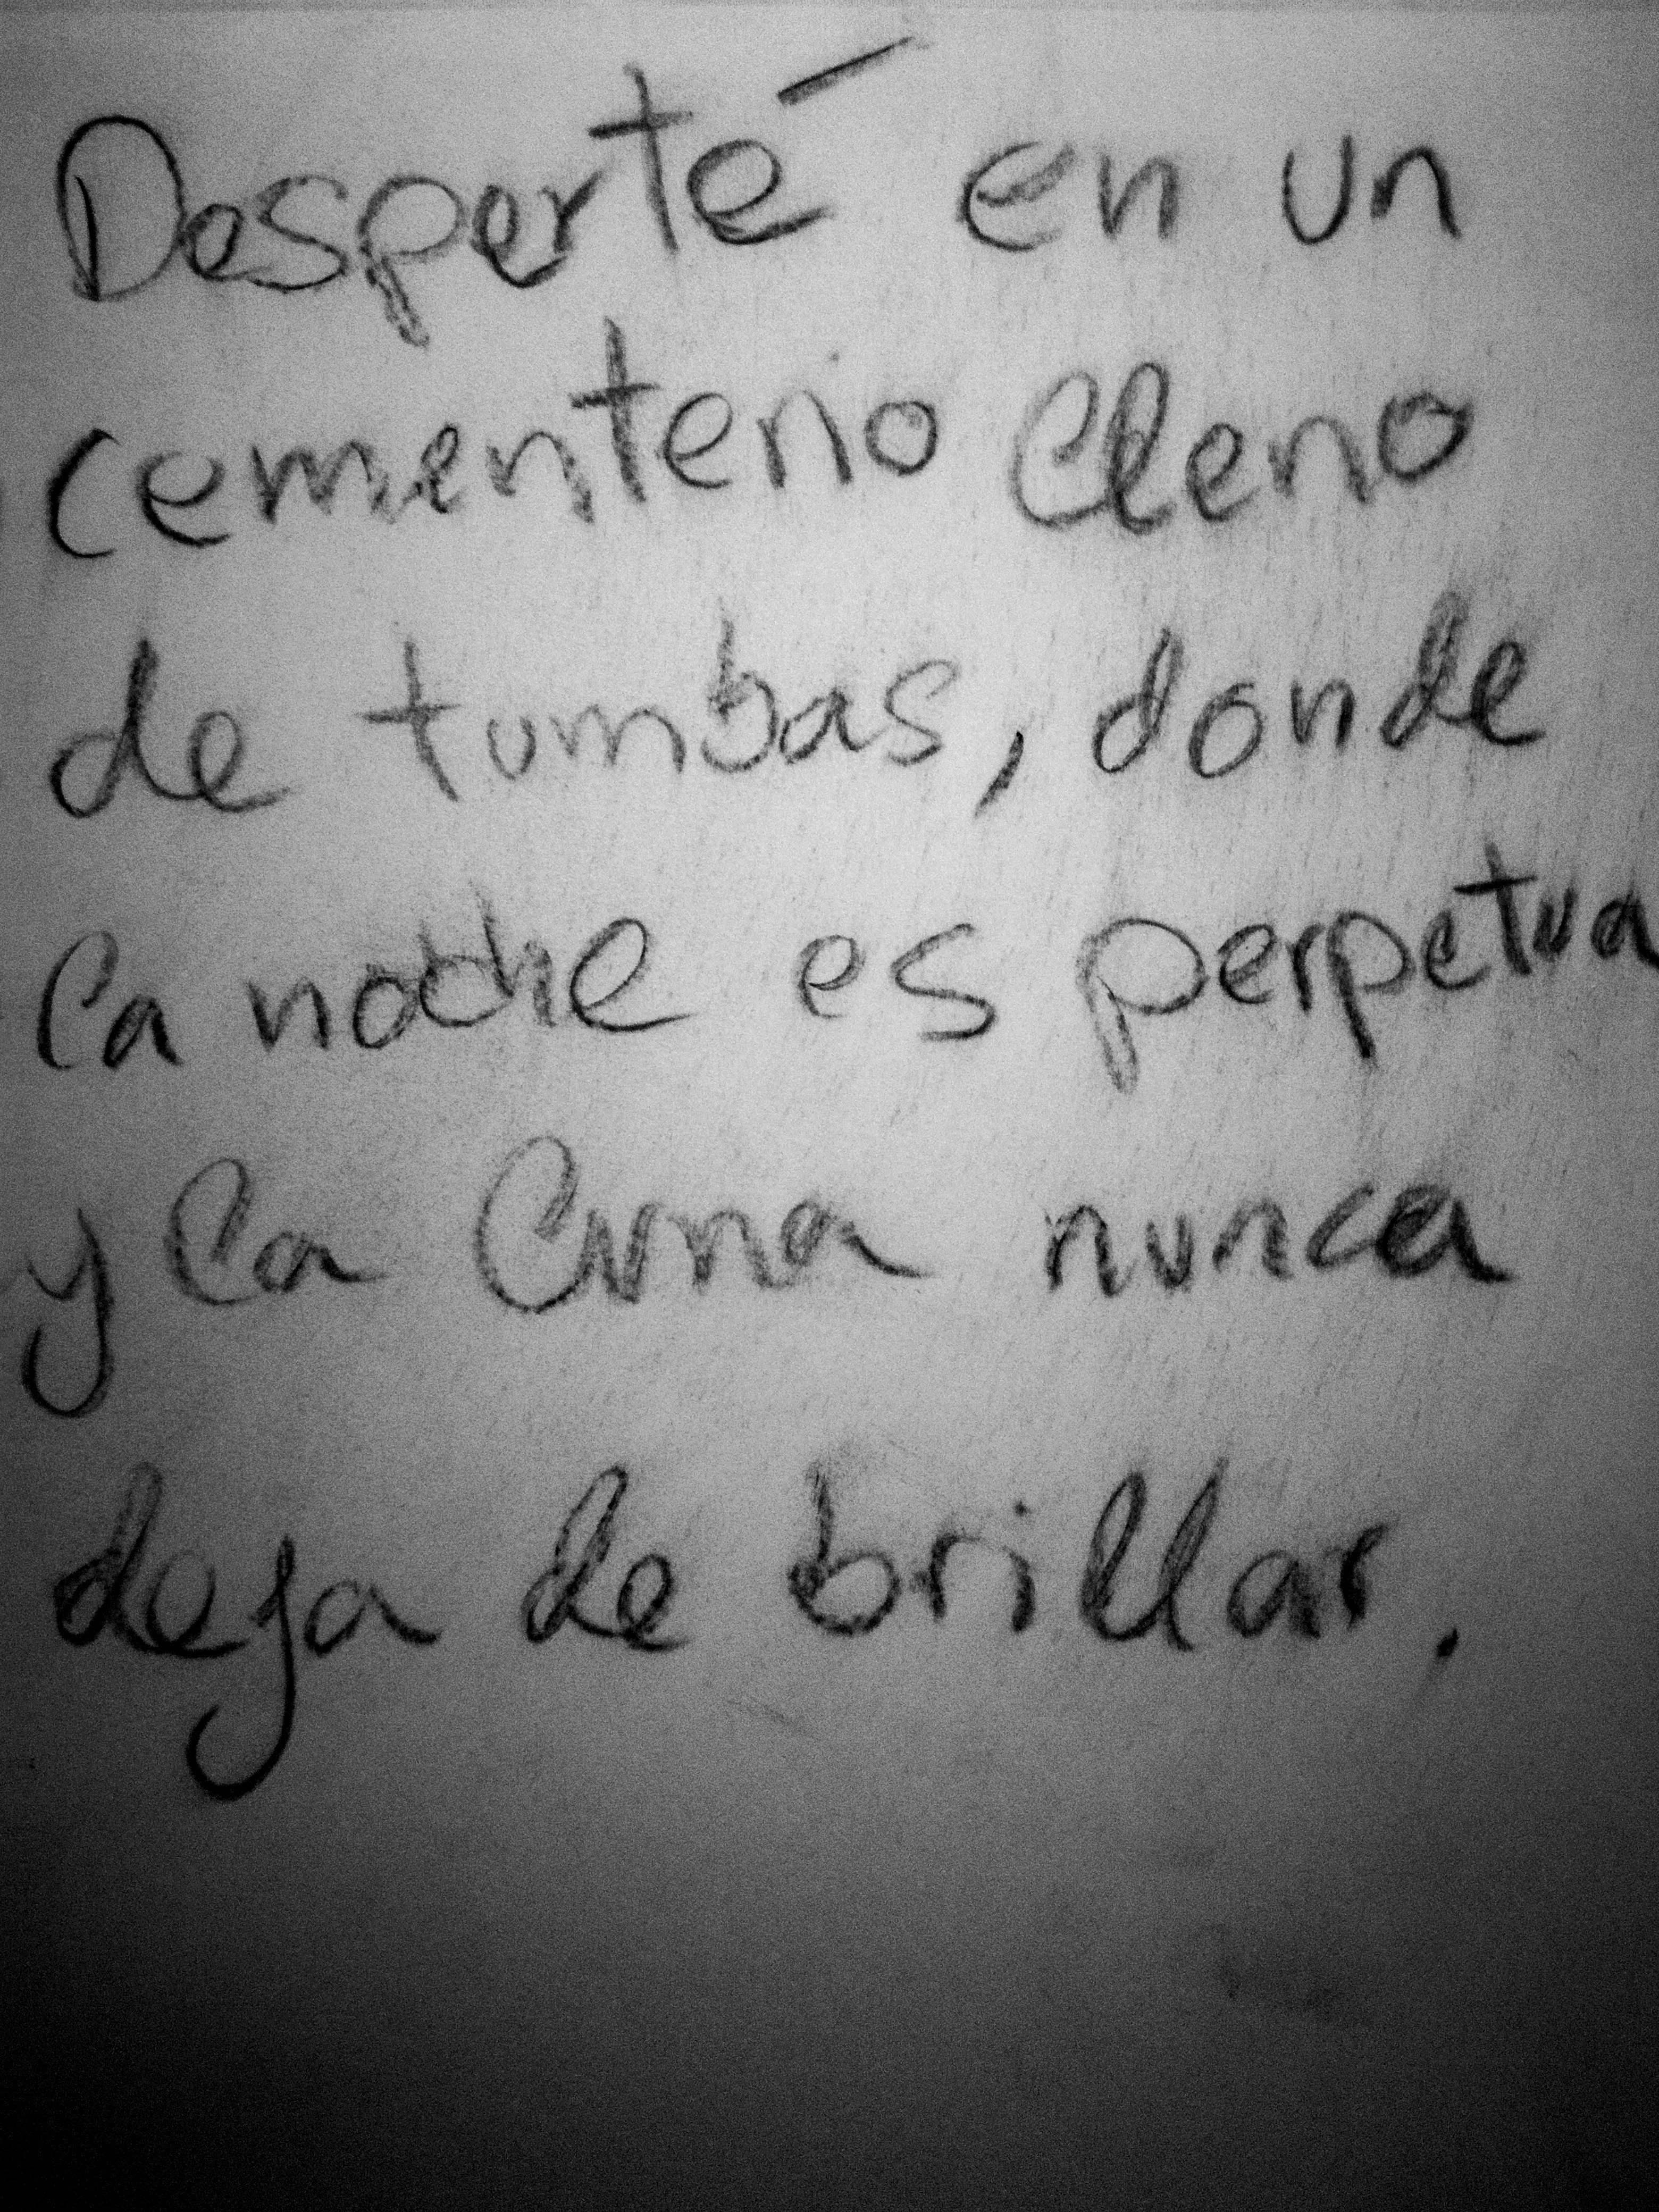 Desperté en un
cementerio lleno
de tumbas, donde
la noche es perpetua
y la luna nunca
deja de brillar.